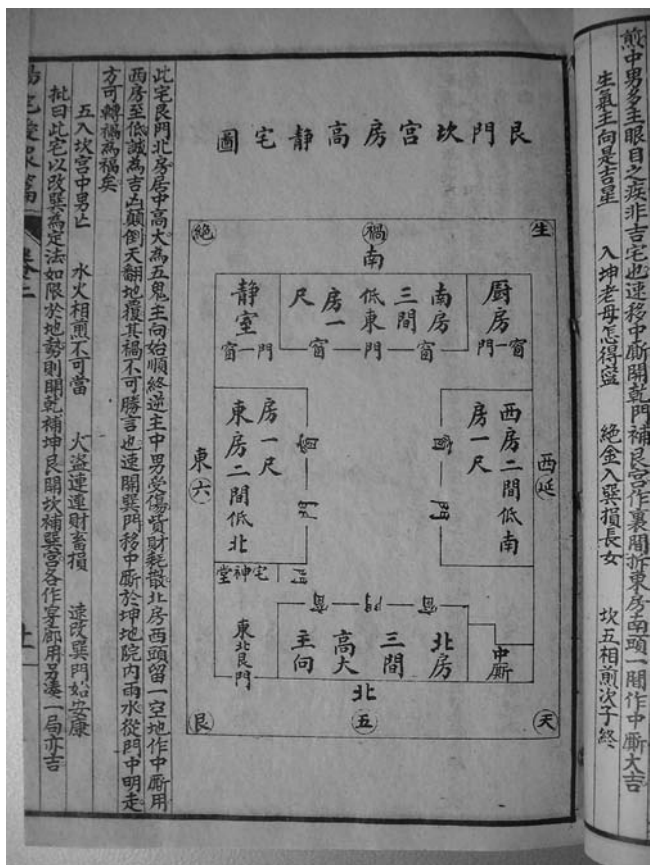 煎中男多主眼目之疾非吉宅也速移中厠開乾門補艮宮作裏間拆東房南頭一間作中厠大吉
生氣主向是吉星 入坤老母怎得寧 絶金入巽損長女 坎五相煎次子終
艮門坎宮房高靜宅圖
生
禍
絶
南
厨房
窗一門
南房
三間
低東
房一
尺
窗
門
窗
靜室
門一窗
西房二間低南
房一尺
西
延
東房二間低北
房一尺
東
六
窗
門
窗
門
宅神堂
門
中厠
北房
三間
高大
主向
窗
門
窗
東北艮門
北
天
五
艮
此宅艮門北房居中高大為五鬼主向始順終逆主中男受傷貲財耗散北房西頭留一空地作中厠用
西房至低誠為吉凶顛倒天翻地覆其禍不可勝言也速開巽門移中厠於坤地院內雨水從門中明走
方可轉禍為福矣
五入坎宮中男亡 水火相煎不可當 火盜連遭財畜損 速改巽門始安康
批曰此宅以改巽為定法如限於地勢則開乾補坤艮開坎補巽宮各作穿廊用另湊一局亦吉